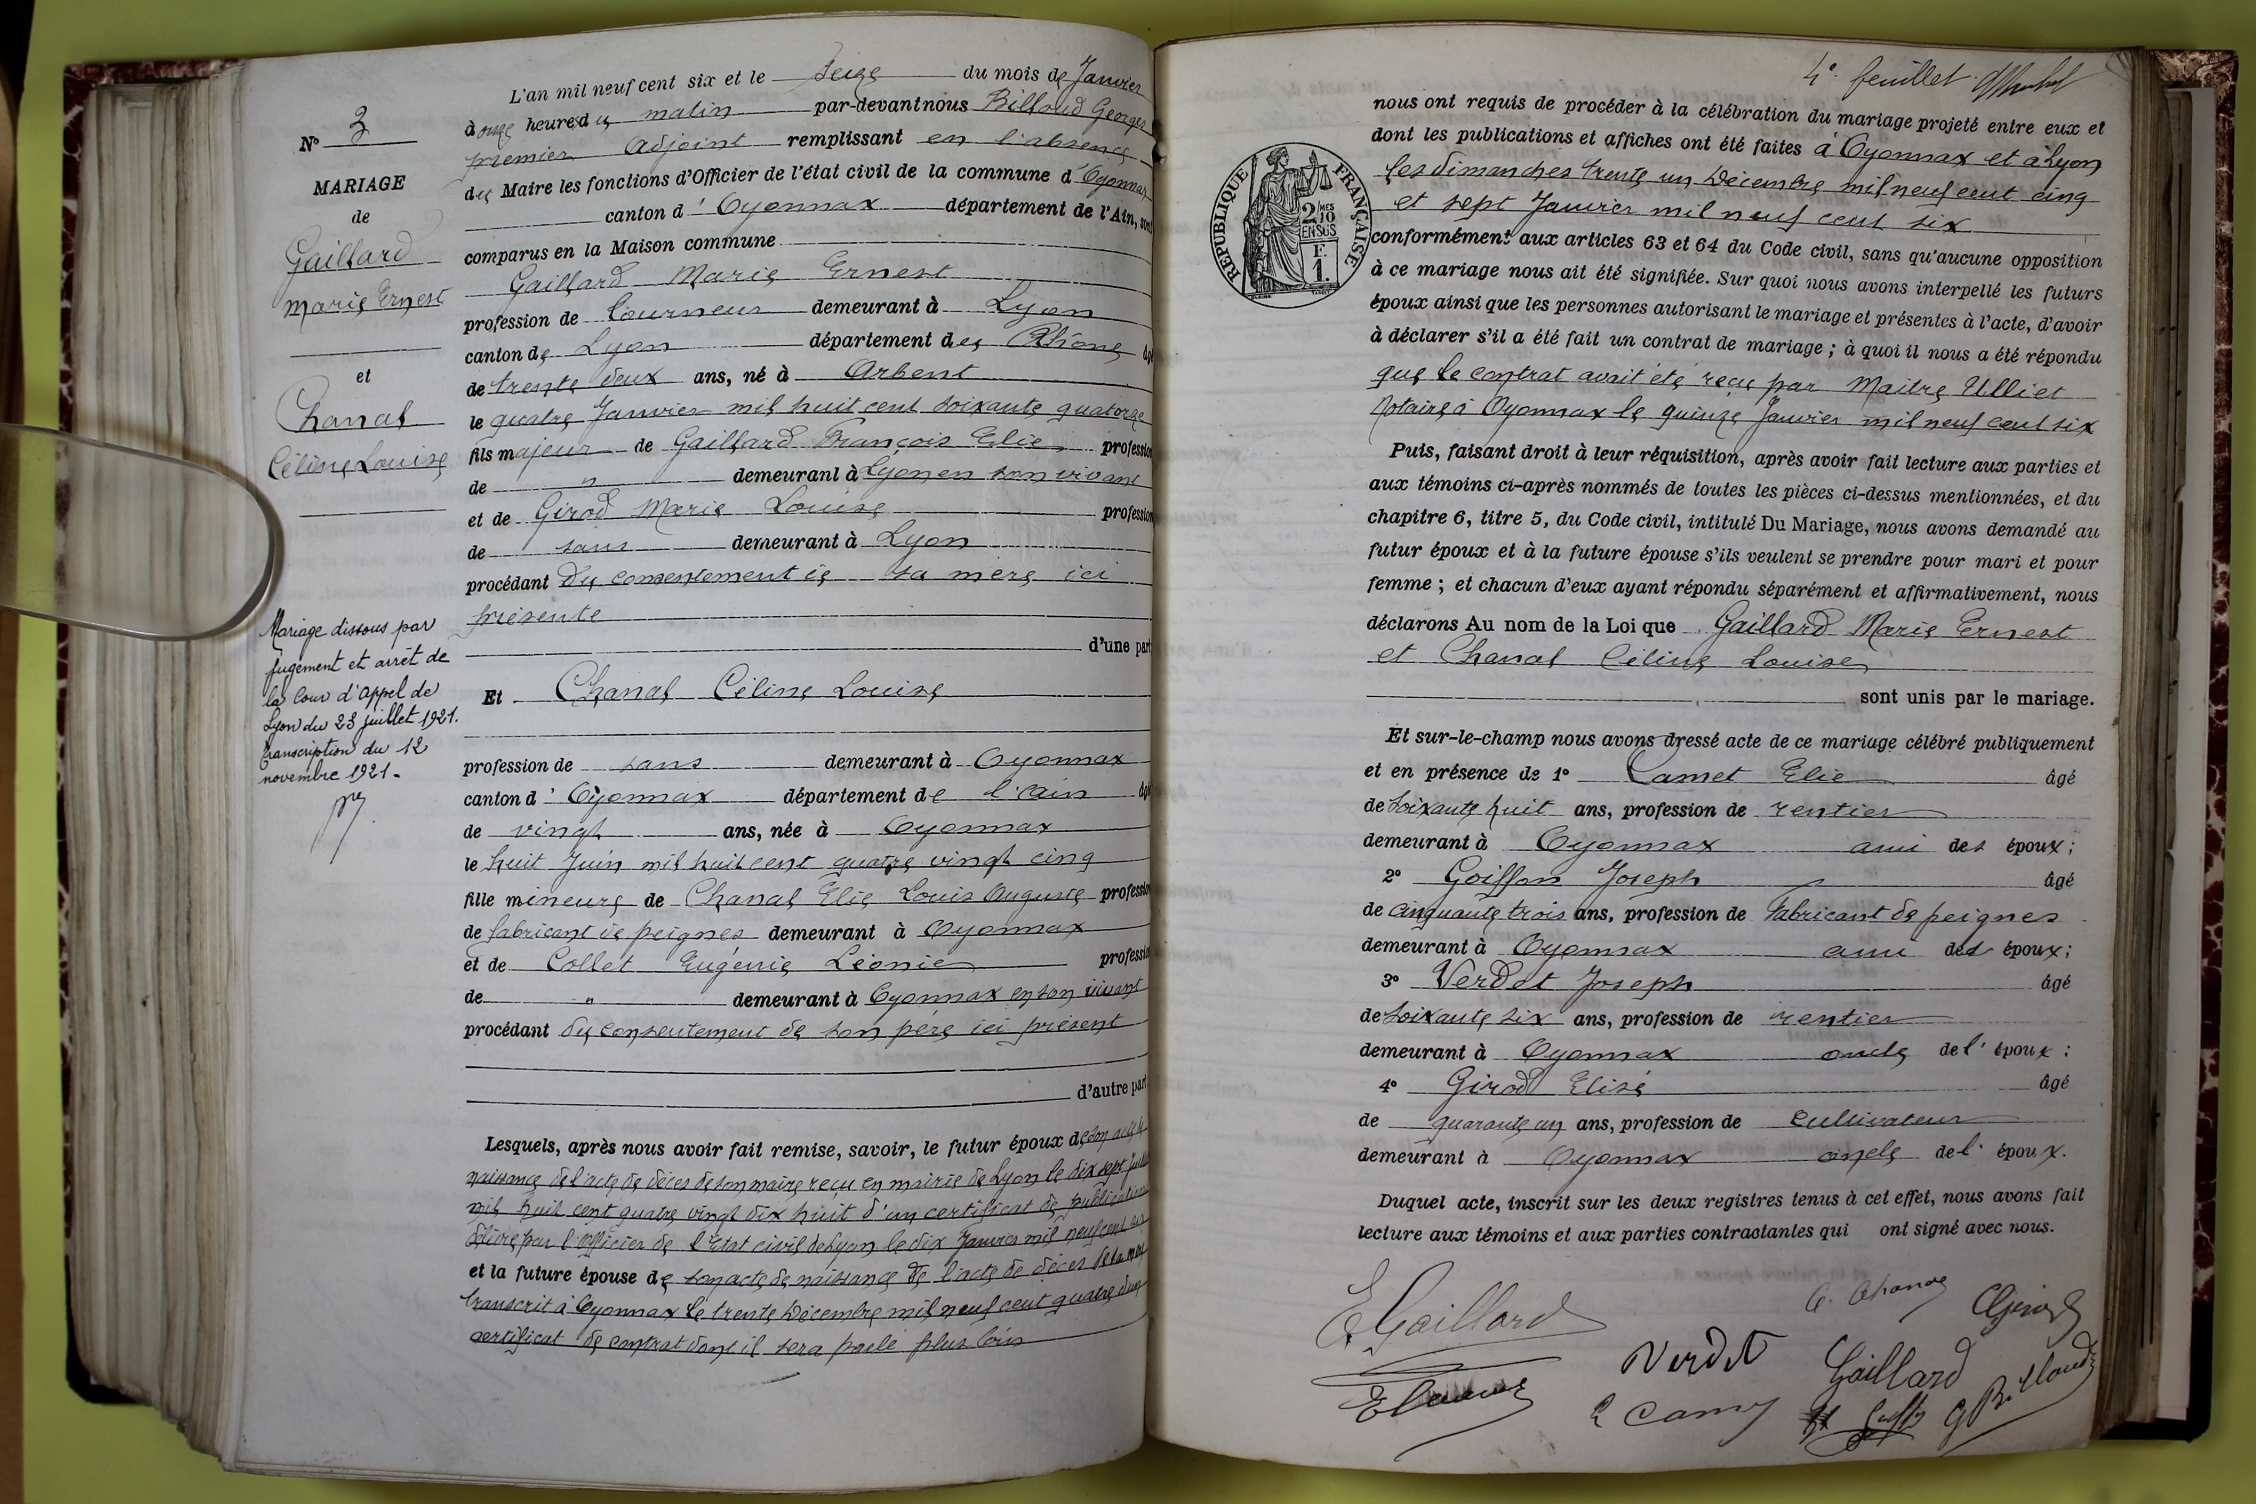 N° 3
MARIAGE
de
Gaillard
Marie Ernest
et
Chanal
Céline Louise
Mariage dissous par
jugement et arrêt de
la Cour d'appel de
Lyon du 23 juillet 1921.
Transcription du 12
novembre 1921.
L'an mil neuf cent six et le Seize du mois de Janvier
à onze heures du matin par-devant nous Billoud Georges
premier Adjoint remplissant en l'absence
du Maire les fonctions d'Officier de l'état civil de la commune d'Oyonnax
canton d'Oyonnax département de l'Ain, sont
comparus en la Maison commune
Gaillard Marie Ernest
profession de tourneur demeurant à Lyon
canton de Lyon département du Rhône âgé
de trente deux ans, né à Arbent
le quatre Janvier mil huit cent soixante quatorze
fils majeur de Gaillard François Elie profession
de " demeurant à Lyon en son vivant
et de Girod Marie Louise profession
de sans demeurant à Lyon
procédant du consentement de sa mère ici
présente
d'une part
Et Chanal Céline Louise
profession de sans demeurant à Oyonnax
canton d'Oyonnax département de l'ain âgé
de vingt ans, née à Oyonnax
le huit Juin mil huit cent quatre vingt cinq
fille mineure de Chanal Elie Louis Auguste profession
de fabricant de peignes demeurant à Oyonnax
et de Collet Eugénie Léonie profession
de " demeurant à Oyonnax en son vivant
procédant du consentement de son père ici présent
d'autre part
Lesquels, après nous avoir fait remise, savoir, le futur époux de son acte de
naissance de l'acte de décès de son reçu en mairie de Lyon le dix sept
mil huit cent quatre vingt dix huit d'un certificat de publication
délivré par l'officier de l'Etat civil de Lyon le dix Janvier mil neuf cent six
et la future épouse de son acte de naissance de l'acte de décès de sa mère
transcrit à Oyonnax le trente Décembre mil neuf cent quatre d'un
certificat de contrat dont il sera parlé plus loin
4e feuillet
RÉPUBLIQUE FRANÇAISE
2/10MES
EN SUS
F.
1.
nous ont requis de procéder à la célébration du mariage projeté entre eux et
dont les publications et affiches ont été faites à Oyonnax et à Lyon
les dimanches trente un Décembre mil neuf cent cinq
et sept Janvier mil neuf cent six
conformément aux articles 63 et 64 du Code civil, sans qu'aucune opposition
à ce mariage nous ait été signifiée. Sur quoi nous avons interpellé les futurs
époux ainsi que les personnes autorisant le mariage et présentes à l'acte, d'avoir
à déclarer s'il a été fait un contrat de mariage ; à quoi il nous a été répondu
que le contrat avait été reçu par Maître Ulliet
Notaire à Oyonnax le quinze Janvier mil neuf cent six
Puis, faisant droit à leur réquisition, après avoir fait lecture aux parties et
aux témoins ci-après nommés de toutes les pièces ci-dessus mentionnées, et du
chapitre 6, titre 5, du Code civil, intitulé Du Mariage, nous avons demandé au
futur époux et à la future épouse s'ils veulent se prendre pour mari et pour
femme ; et chacun d'eux ayant répondu séparément et affirmativement, nous
déclarons Au nom de la Loi que Gaillard Marie Ernest
et Chanal Céline Louise
sont unis par le mariage.
Et sur-le-champ nous avons dressé acte de ce mariage célébré publiquement
et en présence de 1° Camet Elie âgé
de soixante huit ans, profession de rentier
demeurant à Oyonnax ami des époux ;
2° Goiffon Joseph âgé
de cinquante trois ans, profession de fabricant de peignes
demeurant à Oyonnax ami des époux ;
3° Verdet Joseph âgé
de soixante six ans, profession de rentier
demeurant à Oyonnax oncle de l'époux ;
4° Girod Elisé âgé
de quarante un ans, profession de cultivateur
demeurant à Oyonnax oncle de l'époux.
Duquel acte, inscrit sur les deux registres tenus à cet effet, nous avons fait
lecture aux témoins et aux parties contractantes qui ont signé avec nous.
E. Gaillard
C. Chanal
Girod
Verdet
Gaillard
G Billoud